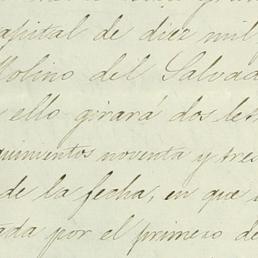 capital de diez mil
Molino del Salvad
ello girará dos let
quinientos noventa y tres
de la fecha, en que
ada por el primero de